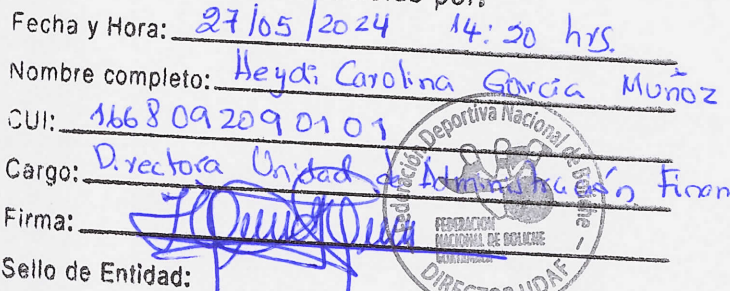 por:
Fecha y Hora: 27/05/2024 14:30 hrs.
Nombre completo: Heydi Carolina García Muñoz
CUI: 1668 09209 0101
Cargo: Directora Unidad de Administración Finan
Firma:
Sello de Entidad:
Federación Deportiva Nacional de Boliche -
FEDERACION
NACIONAL DE BOLICHE
GUATEMALA
DIRECTOR UDAF